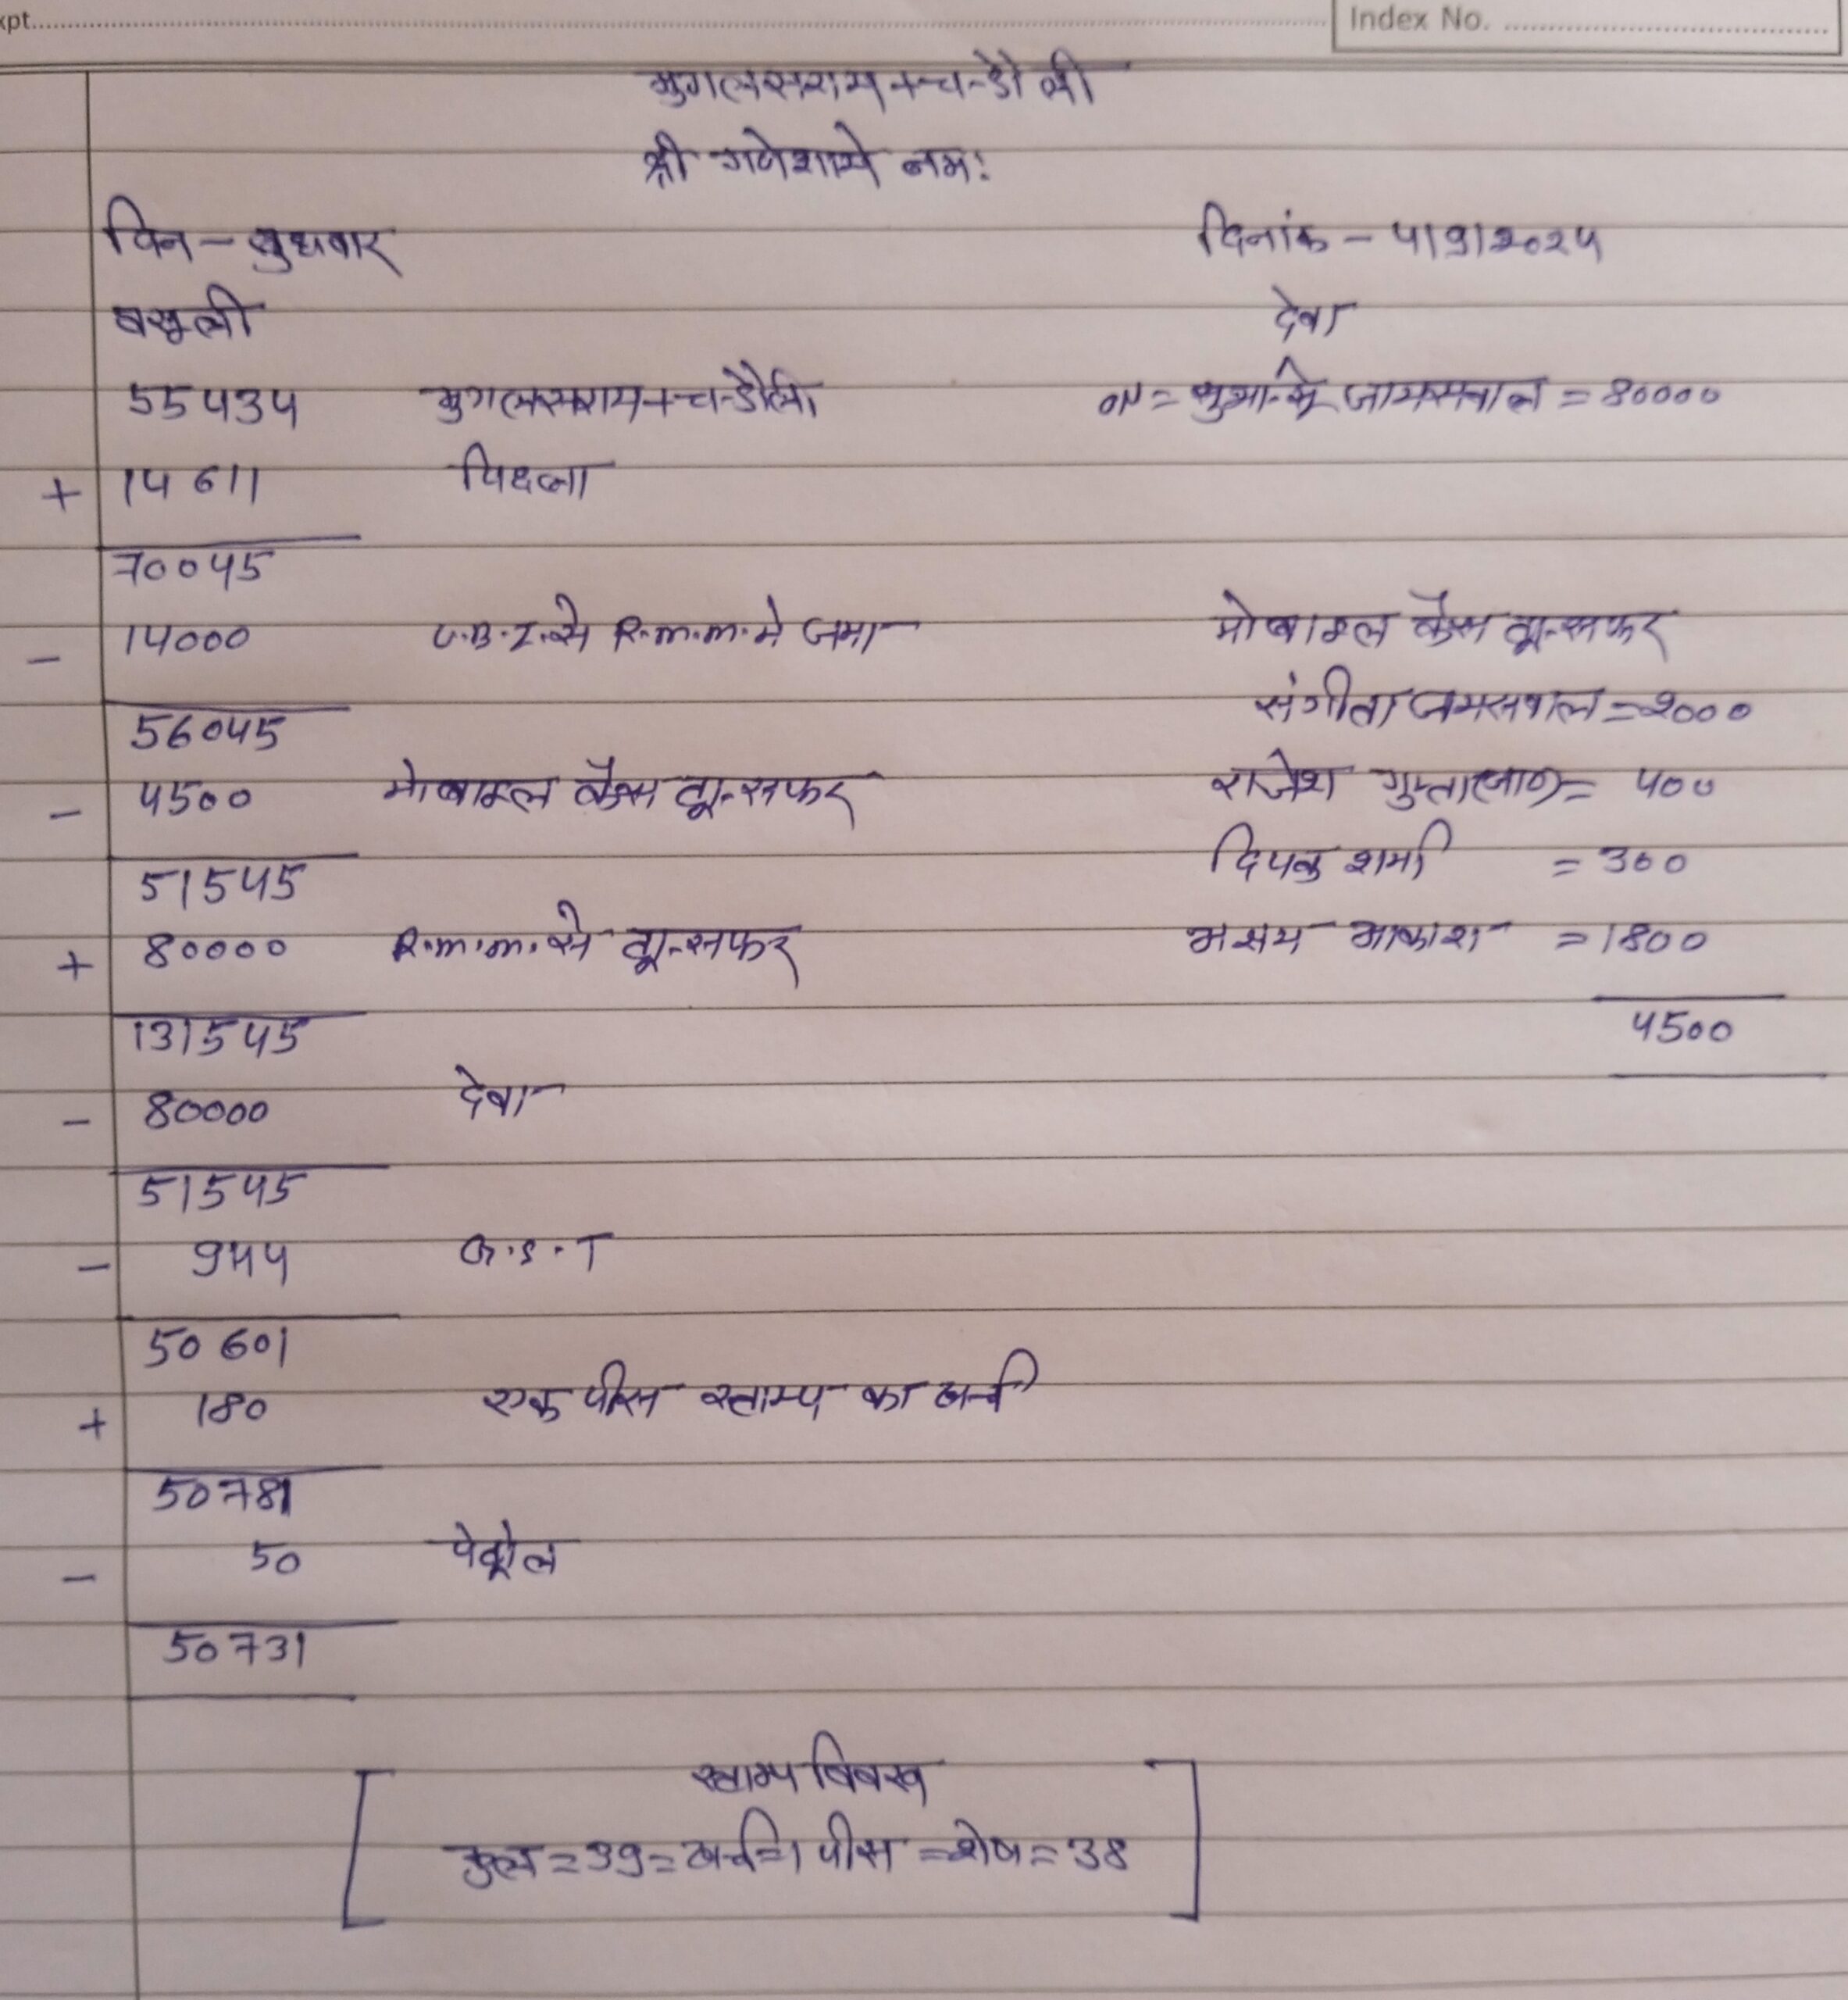 xpt.
Index No.
मुगलसराय + चन्डौली
श्री गणेशाये नम:
दिन - बुधवार
दिनांक - 4|9|2024
बसूली
देवा
55434 मुगलसराय + चन्डौली
जायसवाल = 80000
+ 14611 पिछला
70045
- 14000 U.B.I. से R.m.m. मे जमा
मोबाइल कैस ट्रान्सफर
56045
संगीता जयसवाल = 2000
- 4500 मोबाइल कैस ट्रान्सफर
राजेश गुप्ता = 400
51545
दिपक शर्मा = 300
+ 80000 R.m.m. से ट्रान्सफर
आकाश = 1800
131545
4500
- 80000 देवा
51545
- 944 G.S.T
50601
+ 180 एक पीस स्टाम्प का खर्च
50781
- 50 पेट्रोल
50731
स्टाम्प बिबरण
कुल = 39 = खर्च = 1 पीस = शेष = 38